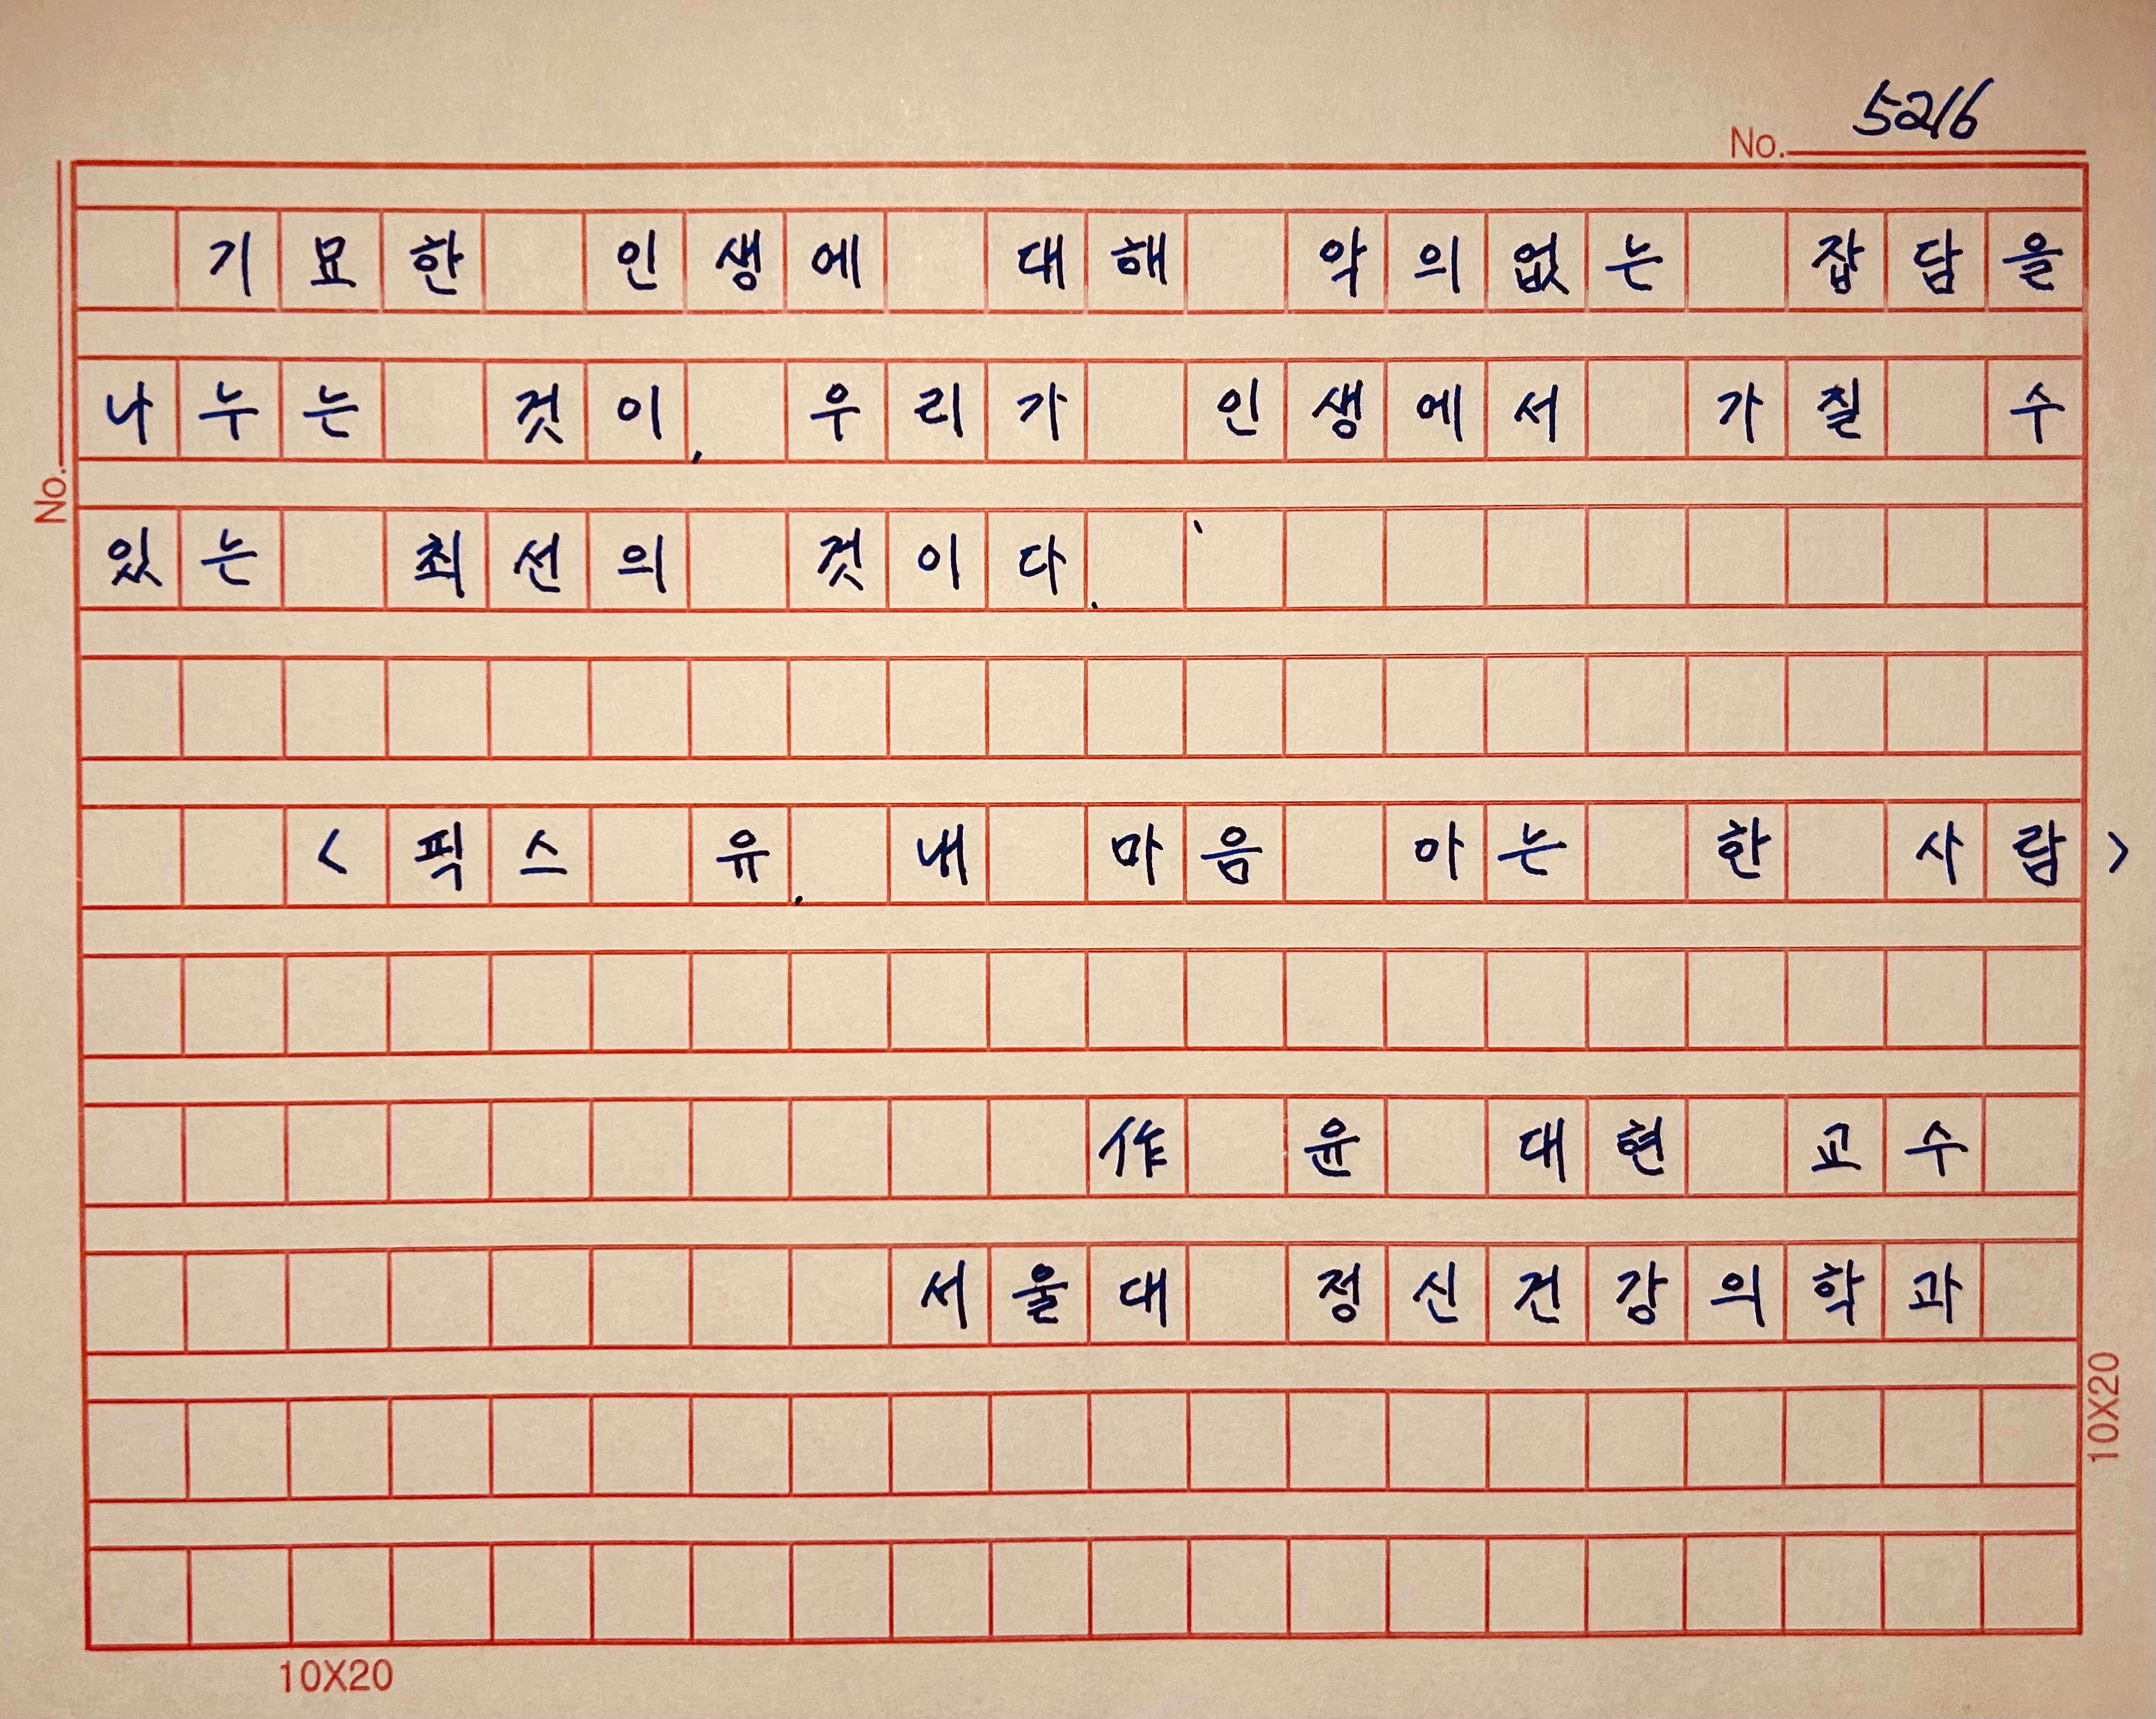 No. 5216
기묘한 인생에 대해 악의없는 잡담을
나누는 것이, 우리가 인생에서 가질 수
있는 최선의 것이다.
<픽스 유. 내 마음 아는 한 사람>
作 윤 대현 교수
서울대 정신건강의학과
No.
10X20
10X20